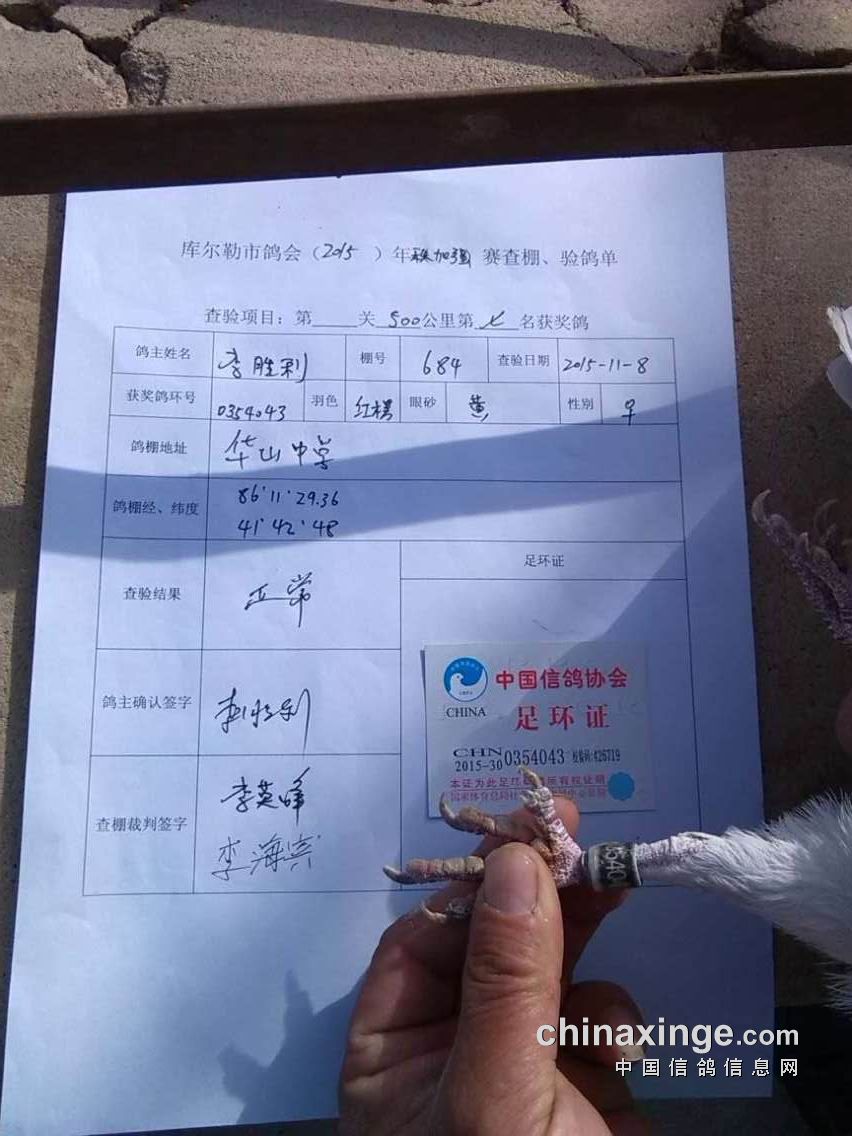 库尔勒市鸽会（2015 ）年秋加强 赛查棚、验鸽单
查验项目：第 关 500公里第 七 名获奖鸽
鸽主姓名 李胜利 棚号 684 查验日期 2015-11-8
获奖鸽环号 0354043 羽色 红楞 眼砂 黄 性别 ♀
鸽棚地址 华山中学
鸽棚经、纬度 86°11'29.36
41°42'48
查验结果 正常
足环证
鸽主确认签字 李胜利
查棚裁判签字 李英峰
李海宾
中国信鸽协会
CHINA
足环证
CHN
2015-30 0354043 校验码:426719
本证为此足环 所有权证明
国家体育总局社
chinaxinge.com
中国信鸽信息网